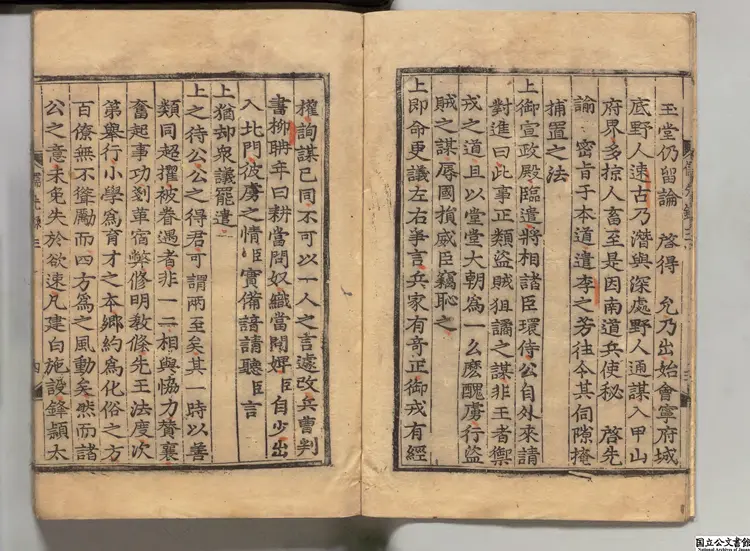 玉堂仍留論 啓得 允乃出始會寧府城
底野人速古乃潛與深處野人通謀入甲山
府界多掠人畜至是因南道兵使秘 啓先
諭 密旨于本道遣李之芳往令其伺隙掩
捕置之法
上御宣政殿臨遣將相諸臣環侍公自外來請
對進曰此事正類盜賊狙譎之謀非王者禦
戎之道且以堂堂大朝爲一么麽醜虜行盜
賊之謀辱國損威臣竊恥之
上即命更議左右爭言兵家有奇正御戎有經
權詢謀已同不可以一人之言遽改兵曹判
書柳聃年曰耕當問奴織當問婢臣自少出
入北門彼虜之情臣實備諳請聽臣言
上猶却衆議罷遣
上之待公公之得君可謂兩至矣其一時以善
類同超擢被眷遇者非一二相與恊力賛襄
奮起事功剗革宿弊修明敎條先王法度次
第舉行小學爲育才之本鄕約爲化俗之方
百僚無不聳勵而四方爲之風動矣然而諸
公之意未免失於欲速凡建白施設鋒穎太
儒先錄三
四
国立公文書館
National Archives of Japan